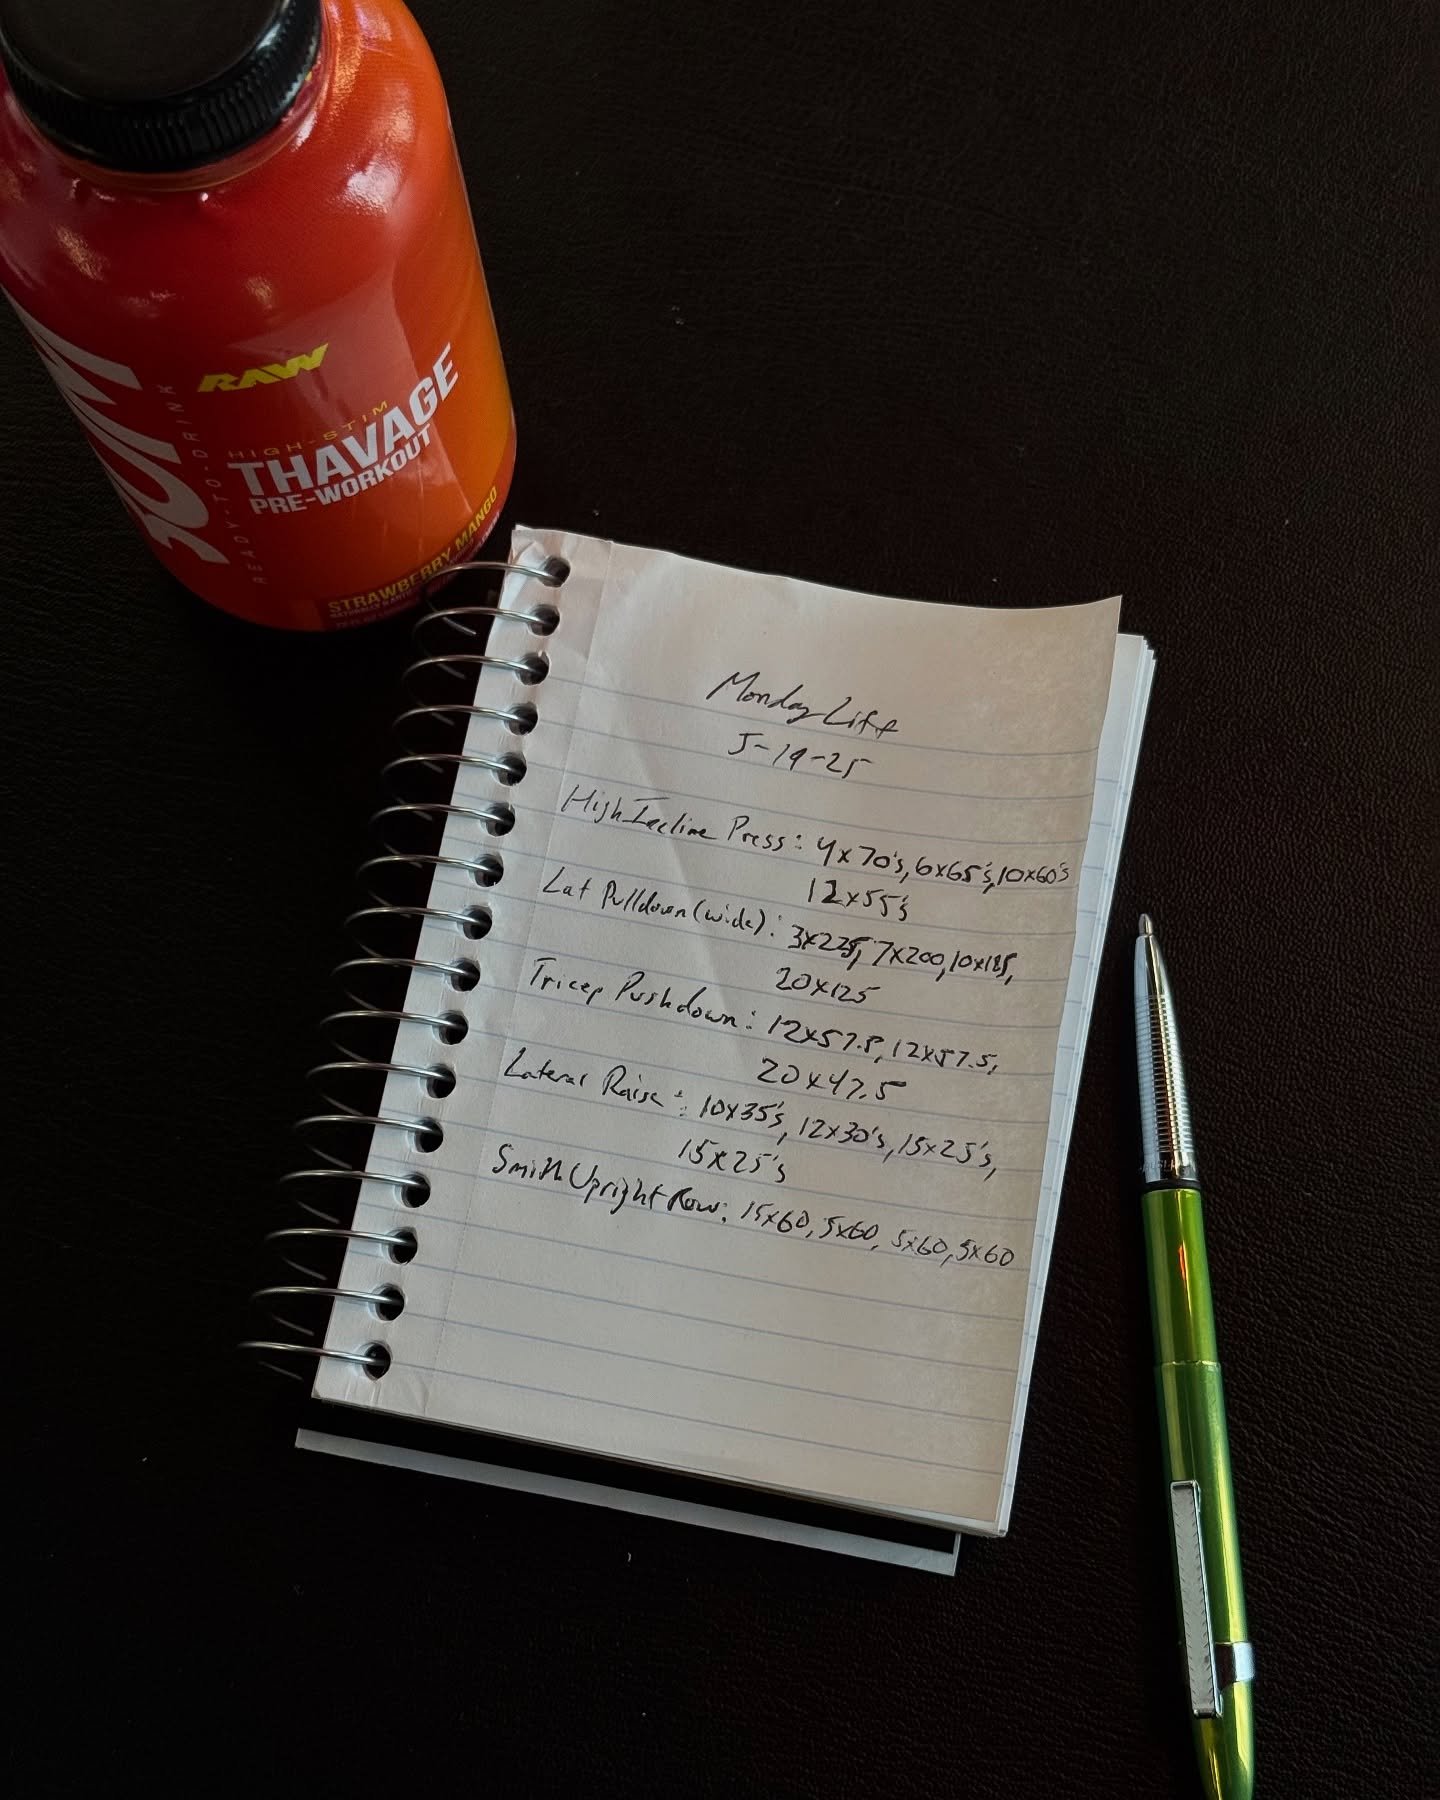 BUM
READY-TO-DRINK
RAW
HIGH-STIM
THAVAGE
PRE-WORKOUT
STRAWBERRY MANGO
Monday Lift
5-19-25
High Incline Press: 4x70's, 6x65's, 10x60's
12x55's
Lat Pulldown (wide): 3x225, 7x200, 10x185,
20x125
Tricep Pushdown: 12x57.5, 12x57.5,
20x47.5
Lateral Raise: 10x35's, 12x30's, 15x25's,
15x25's
Smith Upright Row: 15x60, 5x60, 5x60, 5x60